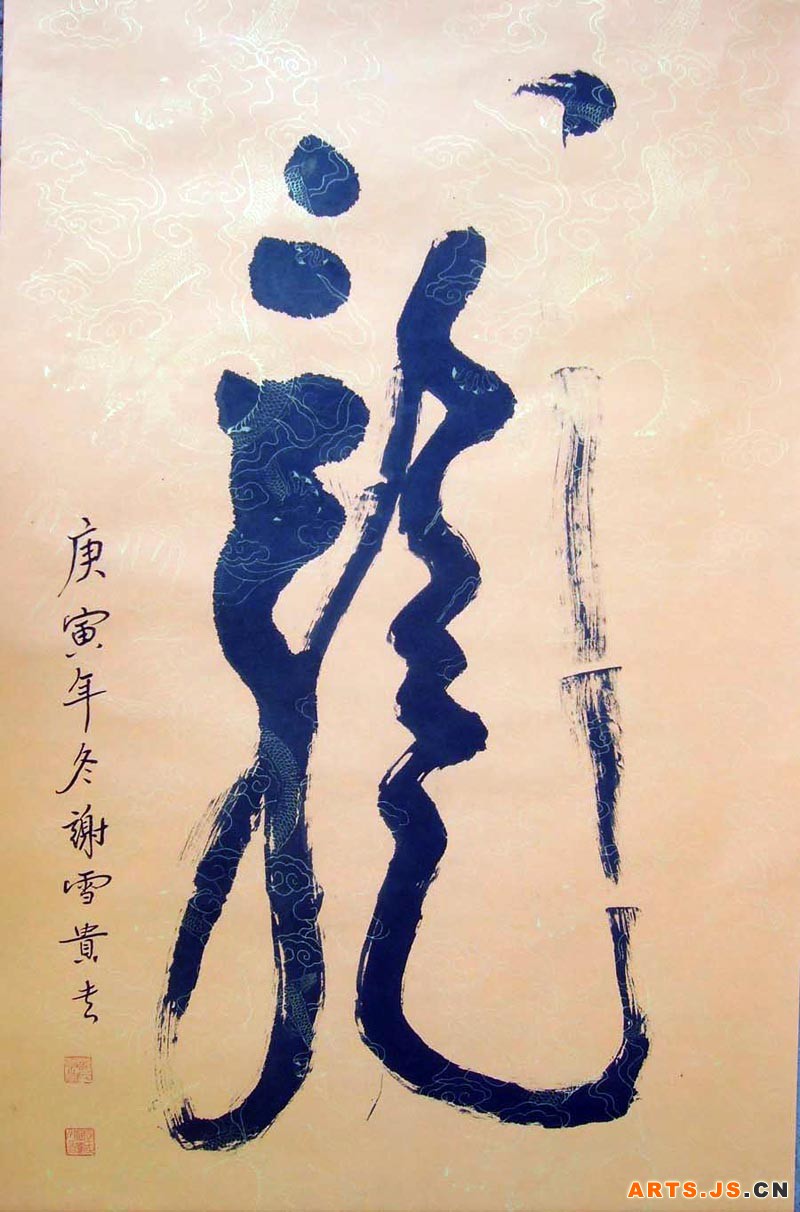 龍
庚寅年冬謝雪貴书
ARTS.JS.CN